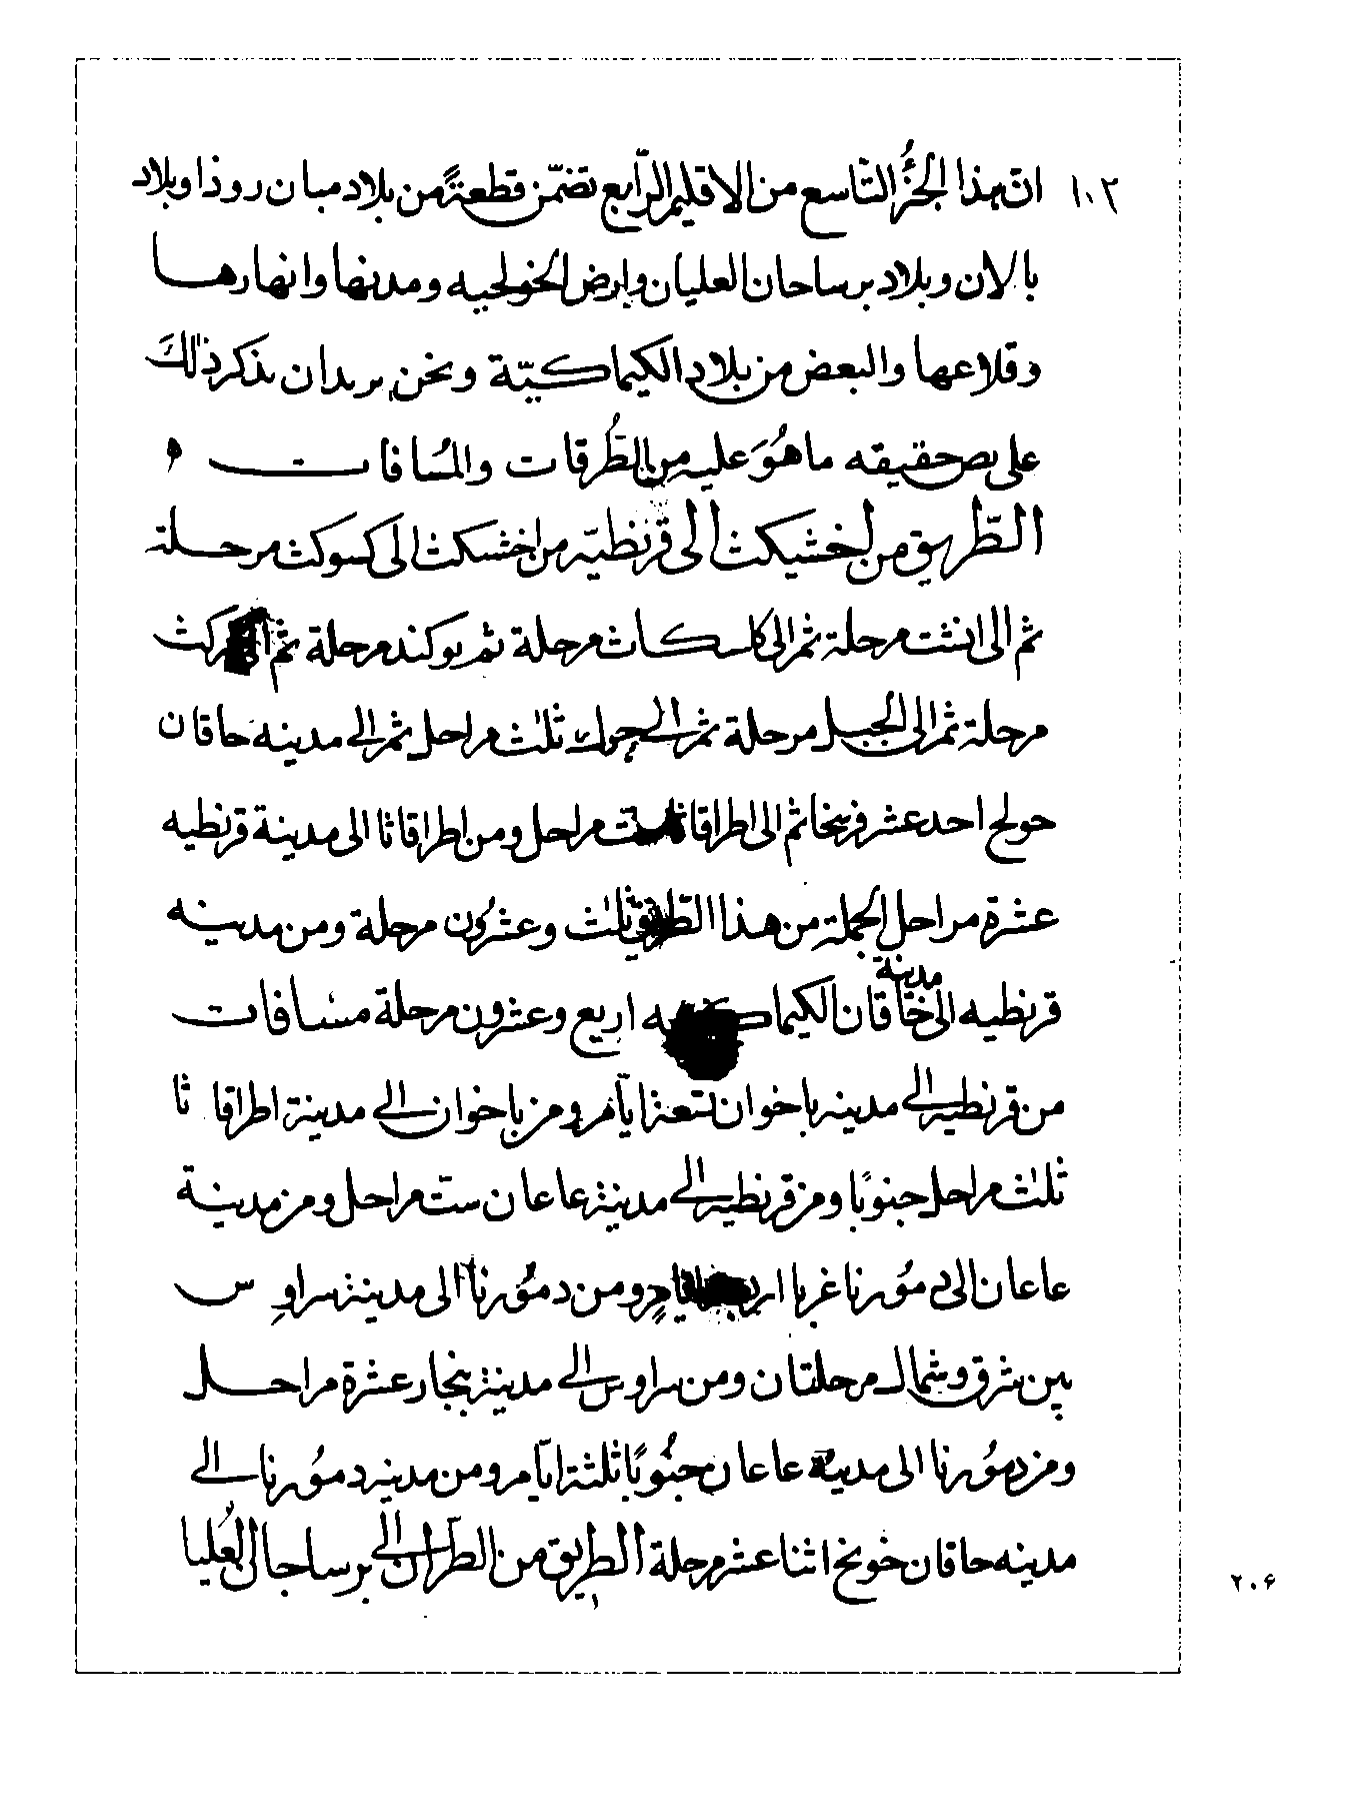 ١٠٢ ان هذا الجزُّ التّاسع من الاقليم الرّابع تضمّن قطعةً من بلاد ميان روذا وبلاد
بالان وبلاد برساحان العليان وارض الخولجيه ومدنها وانهارهـا
وقلاعها والبعض من بلاد الكيماكيّة ونحن يريدان نذكر ذلكَ
على حقيقه ماهُوَ عليه من الطُّرقات والمسافات ه
الطّريق من اخشيكث الى قرنطيّه من اخشيكث الى كسوكث مرحلة
ثم الى انثت مرحلة ثم الى كاسكاث مرحلة ثم يوكند مرحلة ثم الى كث
مرحلة ثم الى الجبل مرحلة ثم الى ثلث مراحل ثم الى مدينه حاقان
حولخ احد عشر فرسخا ثم الى اطراقاثا ست مراحل ومن اطراقاثا الى مدينة قرنطيه
عشرة مراحل الجملة من هذا الطريق ثلث وعشرون مرحلة ومن مدينه
قرنطيه الى مدينة خاقان الكيماكيه اربع وعشرون مرحلة مسافات
من قرنطيه الى مدينه باخوان تسعة ايّام ومن باخوان الى مدينة اطراقاثا
ثلث مراحل جنوبًا ومن قرنطيه الى مدينة عاعان ستّ مراحل ومن مدينة
عاعان الى دمُورنا غربا اربعة ايام ومن دمُورنا الى مدينة سراوس
بين شرق وشمال مرحلتان ومن سراوس الى مدينة بنجار عشرة مراحل
ومن دمُورنا الى مدينة عاعان جنُوبًا ثلثة ايّام ومن مدينه دمُورنا الى
مدينه حاقان خولخ اثنا عشر مرحلة الطريق من الطّراز الى برساجان العُليا
٢٠۶